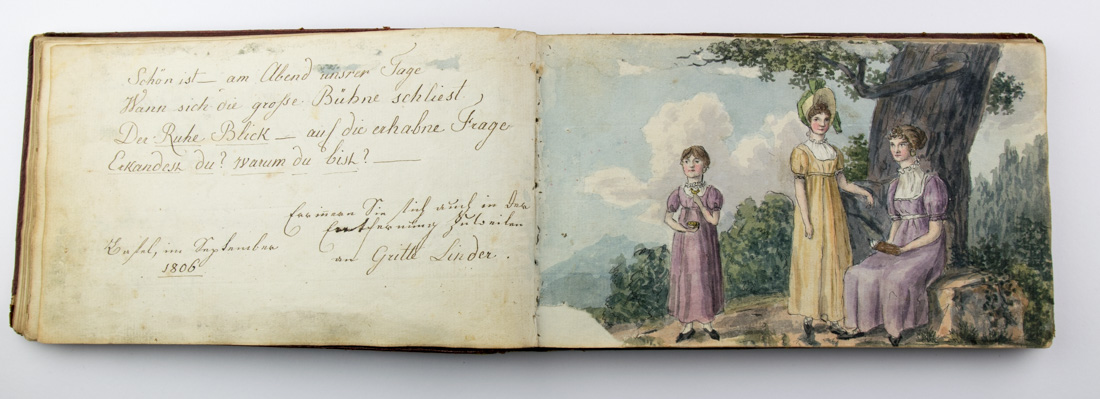 Schön ist — am Abend unsrer Tage
Wann sich die große Bühne schliest
Der Ruhe Blick — auf die erhabne Frage
Erkandest du? warum du bist? —
Errinern Sie sich auch in der
Entfernung zuweilen
an Gritli Linder.
Basel, im September
1806